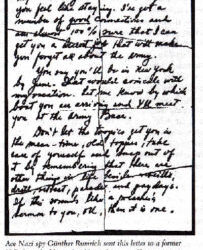 you feel like staying. I've got a
number of good connections and
am almost 100% sure that I can
get you a     that will make
you forget all about the army.
you say you'll be in New York
by June. That would coincide with
my     . Let me know by which
boat you are arriving and I'll meet
you at the Army Base.
Don't let the tropics get you in
the mean-time, old     , take
care of yourself and
it by remembering that there are
other things in life besides
drill,     , parades, and paydays.
If this sounds like a preacher's
sermon to you, OK, then it is one.
Ace Nazi spy Günther Rumrich sent this letter to a former